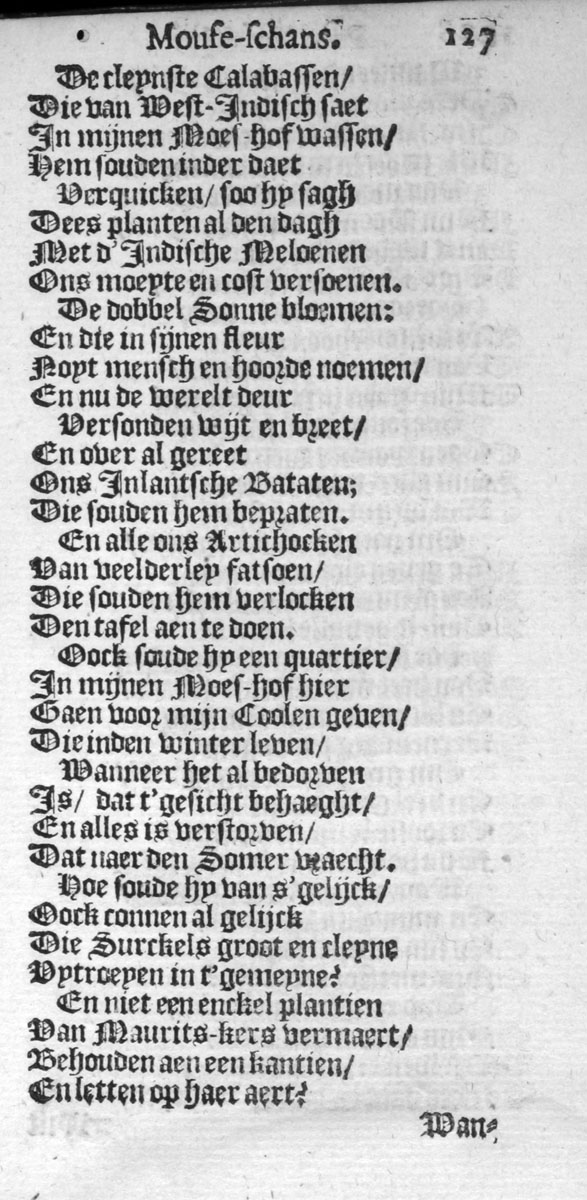 Mouse-schans. 127
De cleynste Calabassen/
Die van West-Indisch saet
In mijnen Moes-hof wassen/
Hem souden inder daet
Verquicken/ soo hy sagh
Dees planten al den dagh
Met d'Indische Meloenen
Ons moeyte en cost versoenen.
De dobbel Sonne bloemen:
En die in sijnen fleur
Noyt mensch en hoorde noemen/
En nu de werelt deur
Versonden wijt en breet/
En over al gereet
Ons Inlantsche Bataten;
Die souden hem bepraten.
En alle ons Artichocken
Van veelderley fatsoen/
Die souden hem verlocken
Den tafel aen te doen.
Oock soude hy een quartier/
In mijnen Moes-hof hier
Gaen voor mijn Coolen geven/
Die inden winter leven/
Wanneer het al bedorven
Is/ dat t'gesicht behaeght/
En alles is verstorven/
Dat naer den Somer vraecht.
Hoe soude hy van s'gelijck/
Oock connen al gelijck
Die Surckels groot en cleyne
Vytroeyen in t'gemeyne?
En niet een enckel plantien
Van Maurits-kers vermaert/
Behouden aen een kantien/
En letten op haer aert?
Wan-